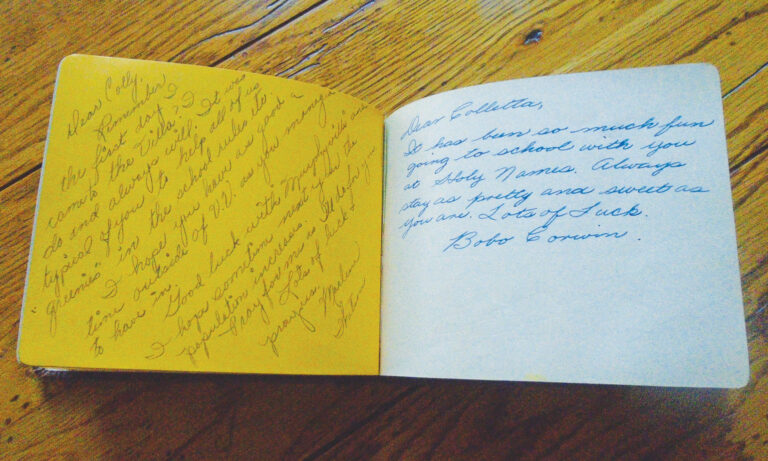 Dear Colly,
Remember
the first day I
came to the Villa? I
do and always will. It was
typical of you to help all of us
"greenies" in the school rules etc
I hope you have as good a
time outside of V.V. as you manage
to have in. Good luck with "Murphyville" and
I hope sometim next year the
population increases.
Pray for me as I'll do for you
Lots of luck &
prayers,
Dear Colletta,
It has been so much fun
going to school with you
at Holy Names. Always
stay as pretty and sweet as
you are. Lots of Luck.
Bobo Corwin.